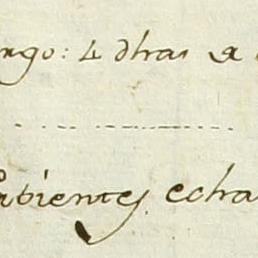 ngo: 4 dhas a
abientes echa